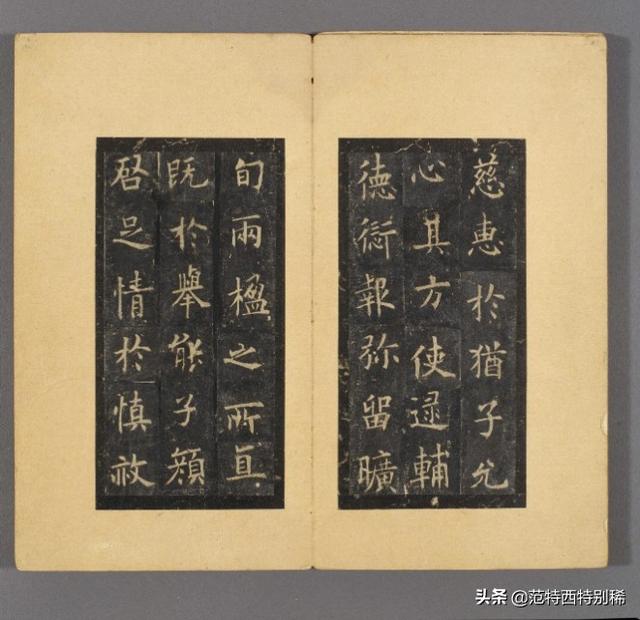 慈惠於猶子允
心其方使逯輔
德愆報弥留曠
旬兩楹之所直
既於舉能子顏
啓足情於慎
头条 @范特西特别稀